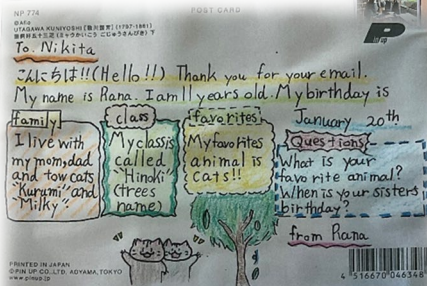 NP 774
POST CARD
©Aflo
UTAGAWA KUNIYOSHI [歌川国芳] (1797-1861)
To. Nikita
こんにちは!!(Hello!!) Thank you for your email.
My name is Rana. I am 11 years old. My birthday is
January 20th
family
I live with
my mom,dad
and tow cats
"Kurumi" and
"Milky"
class
My class is
called
"Hinoki"
(trees
name)
favorites
My favorites
animal is
cats!!
Questions
What is your
favorite animal?
When is your sisters
birthday?
from Rana
PRINTED IN JAPAN
©PIN UP CO.,LTD. AOYAMA, TOKYO
4 516670 046348